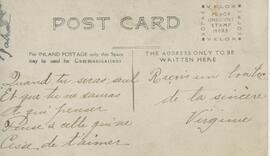 POST CARD
VELOX
PLACE
ONE CENT
STAMP
HERE
VELOX
FOR INLAND POSTAGE only this Space
may be used for Communications
THE ADDRESS ONLY TO BE
WRITTEN HERE
Quand tu seras seul
Et que tu ne sauras
à qui penser
Pense à celle qui ne
Cesse de t'aimer
Reçois un
de ta sincère
Virginie